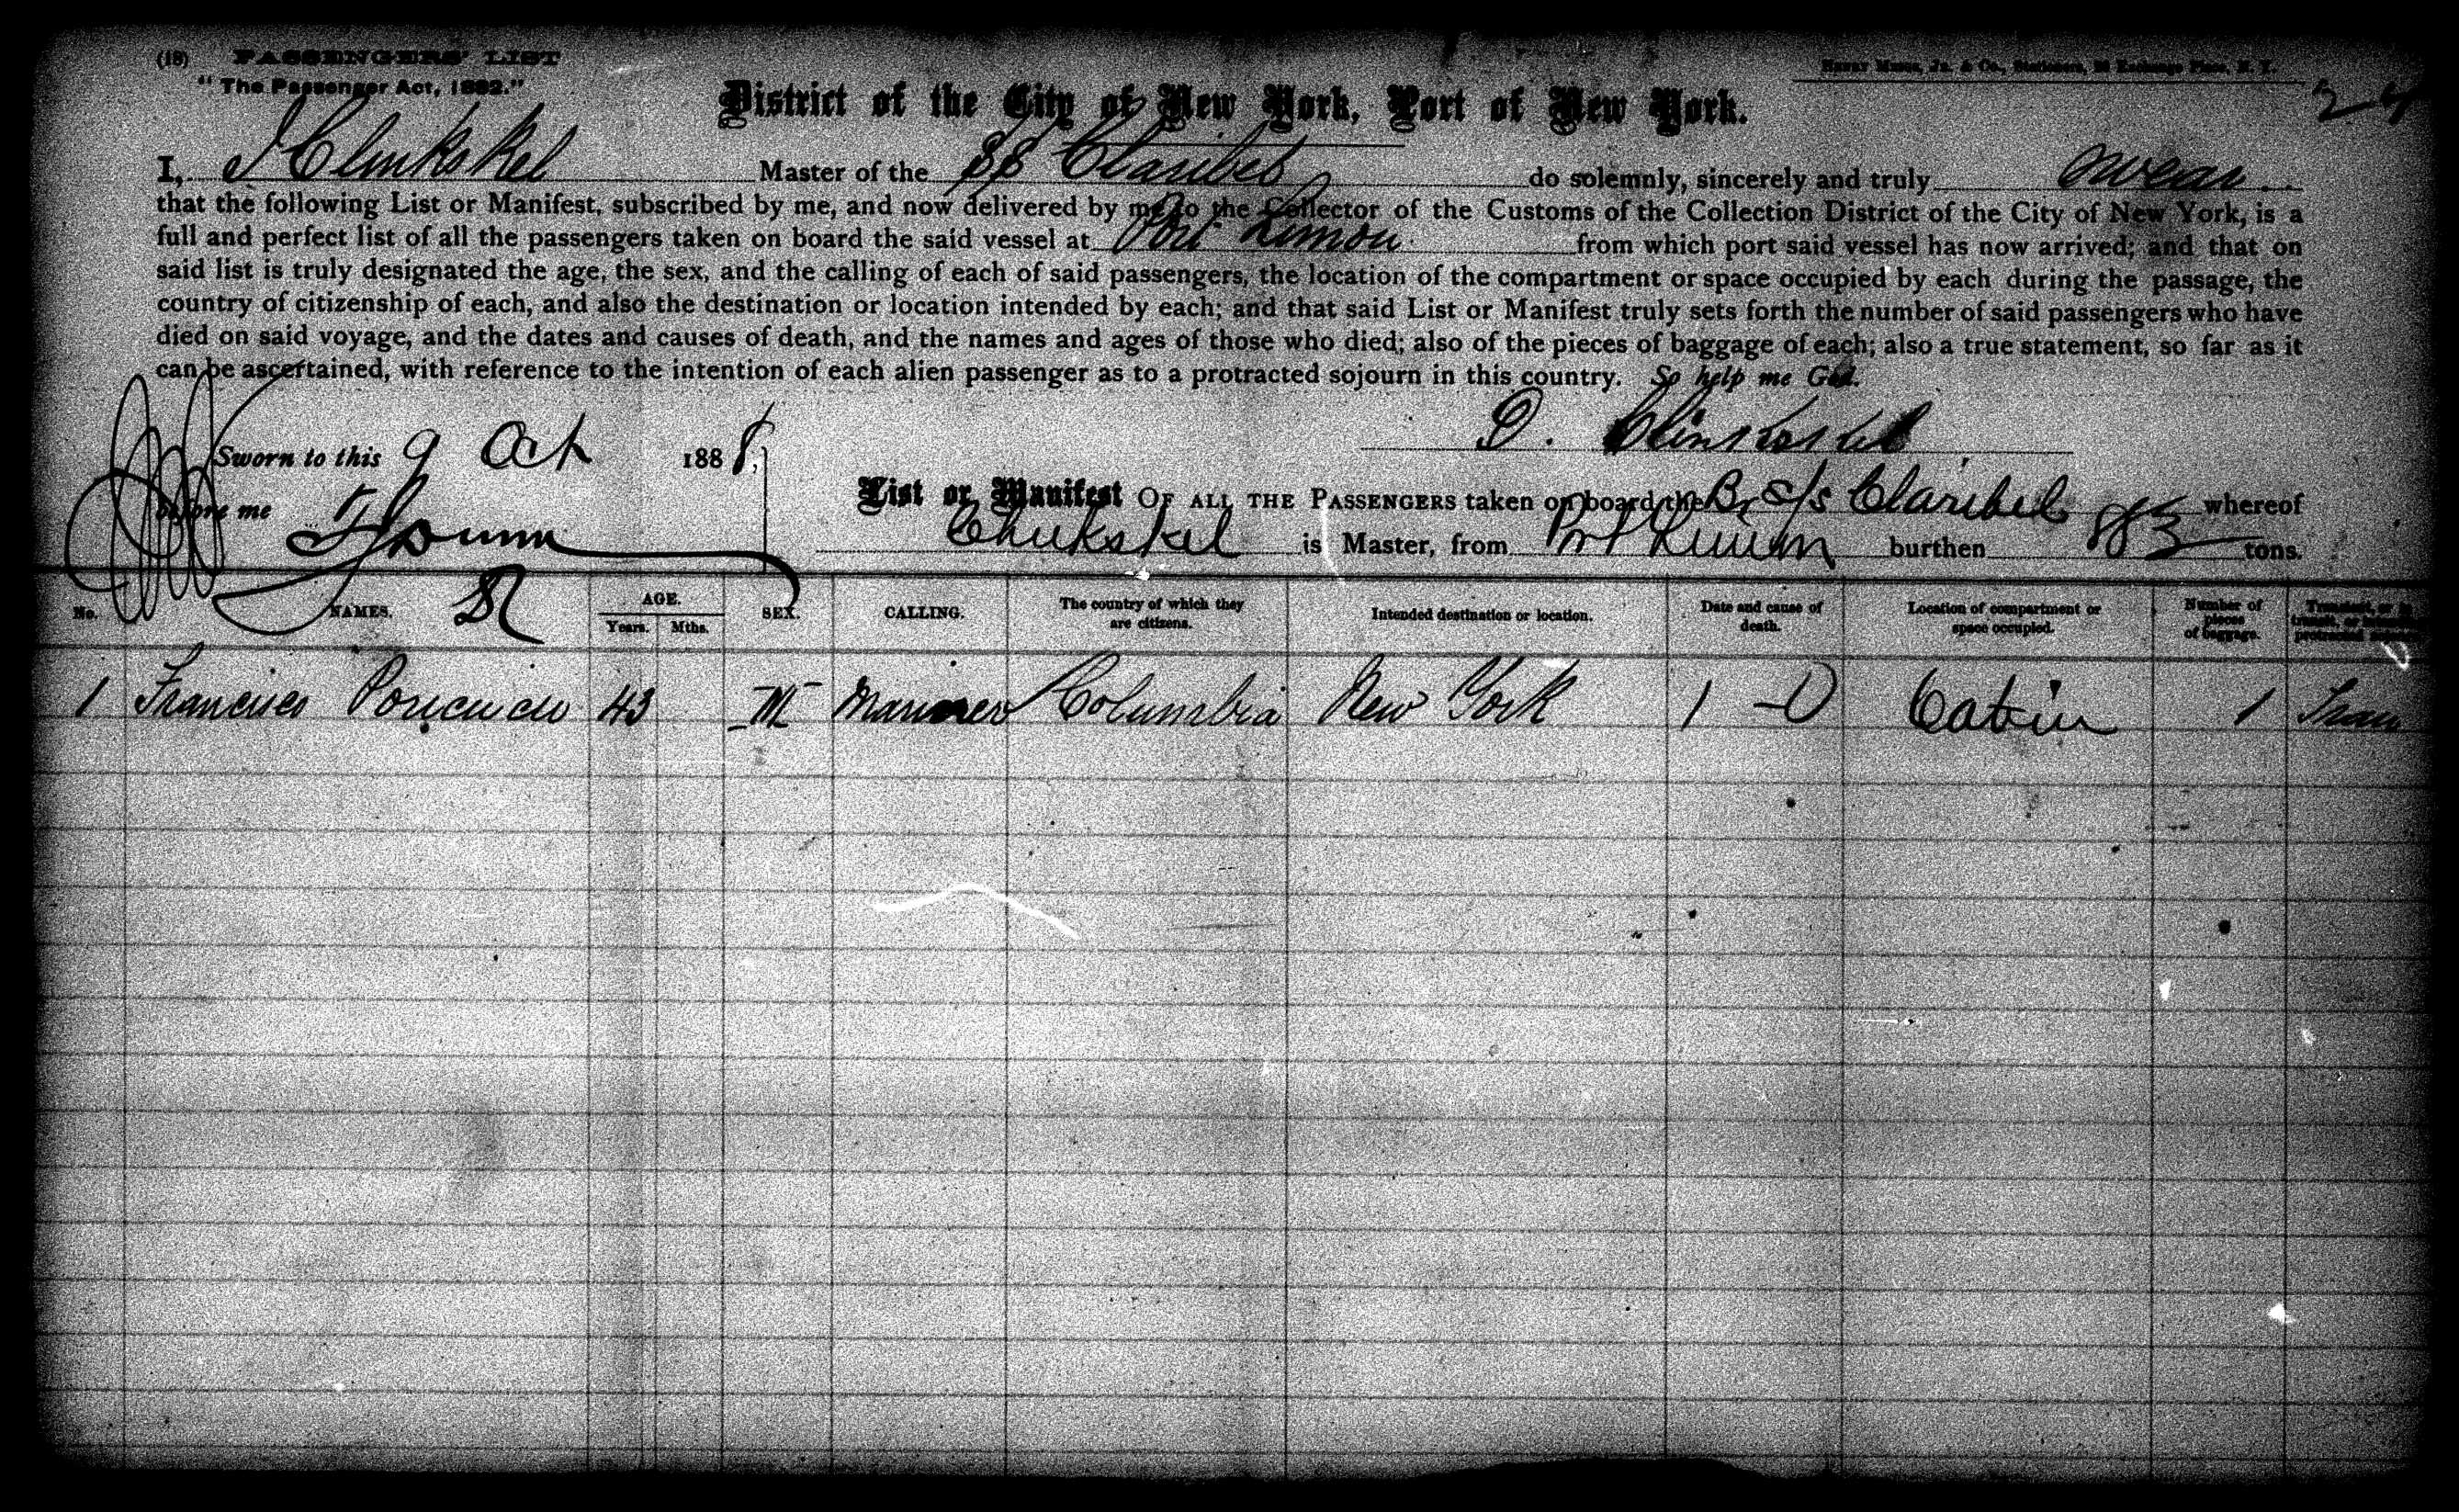 (18) PASSENGERS' LIST
"The Passenger Act, 1882."
Henry Moss, Jr. & Co., Stationers, Exchange Place, N. Y.
24
District of the City of New York, Port of New York.
I, Clinkskel Master of the SS Claribel do solemnly, sincerely and truly swear
that the following List or Manifest, subscribed by me, and now delivered by me to the Collector of the Customs of the Collection District of the City of New York, is a
full and perfect list of all the passengers taken on board the said vessel at Port Limon from which port said vessel has now arrived; and that on
said list is truly designated the age, the sex, and the calling of each of said passengers, the location of the compartment or space occupied by each during the passage, the
country of citizenship of each, and also the destination or location intended by each; and that said List or Manifest truly sets forth the number of said passengers who have
died on said voyage, and the dates and causes of death, and the names and ages of those who died; also of the pieces of baggage of each; also a true statement, so far as it
can be ascertained, with reference to the intention of each alien passenger as to a protracted sojourn in this country. So help me God.
Sworn to this 9 Oct 1888,
before me
List or Manifest OF ALL THE PASSENGERS taken on board the Br S/S Claribel whereof
is Master, from Port Limon burthen 883 tons.
No. NAMES. AGE. Years. Mths. SEX. CALLING. The country of which they are citizens. Intended destination or location. Date and cause of death. Location of compartment or space occupied. Number of pieces of baggage.
1 Francisco 43 M Mariner Columbia New York Cabin 1